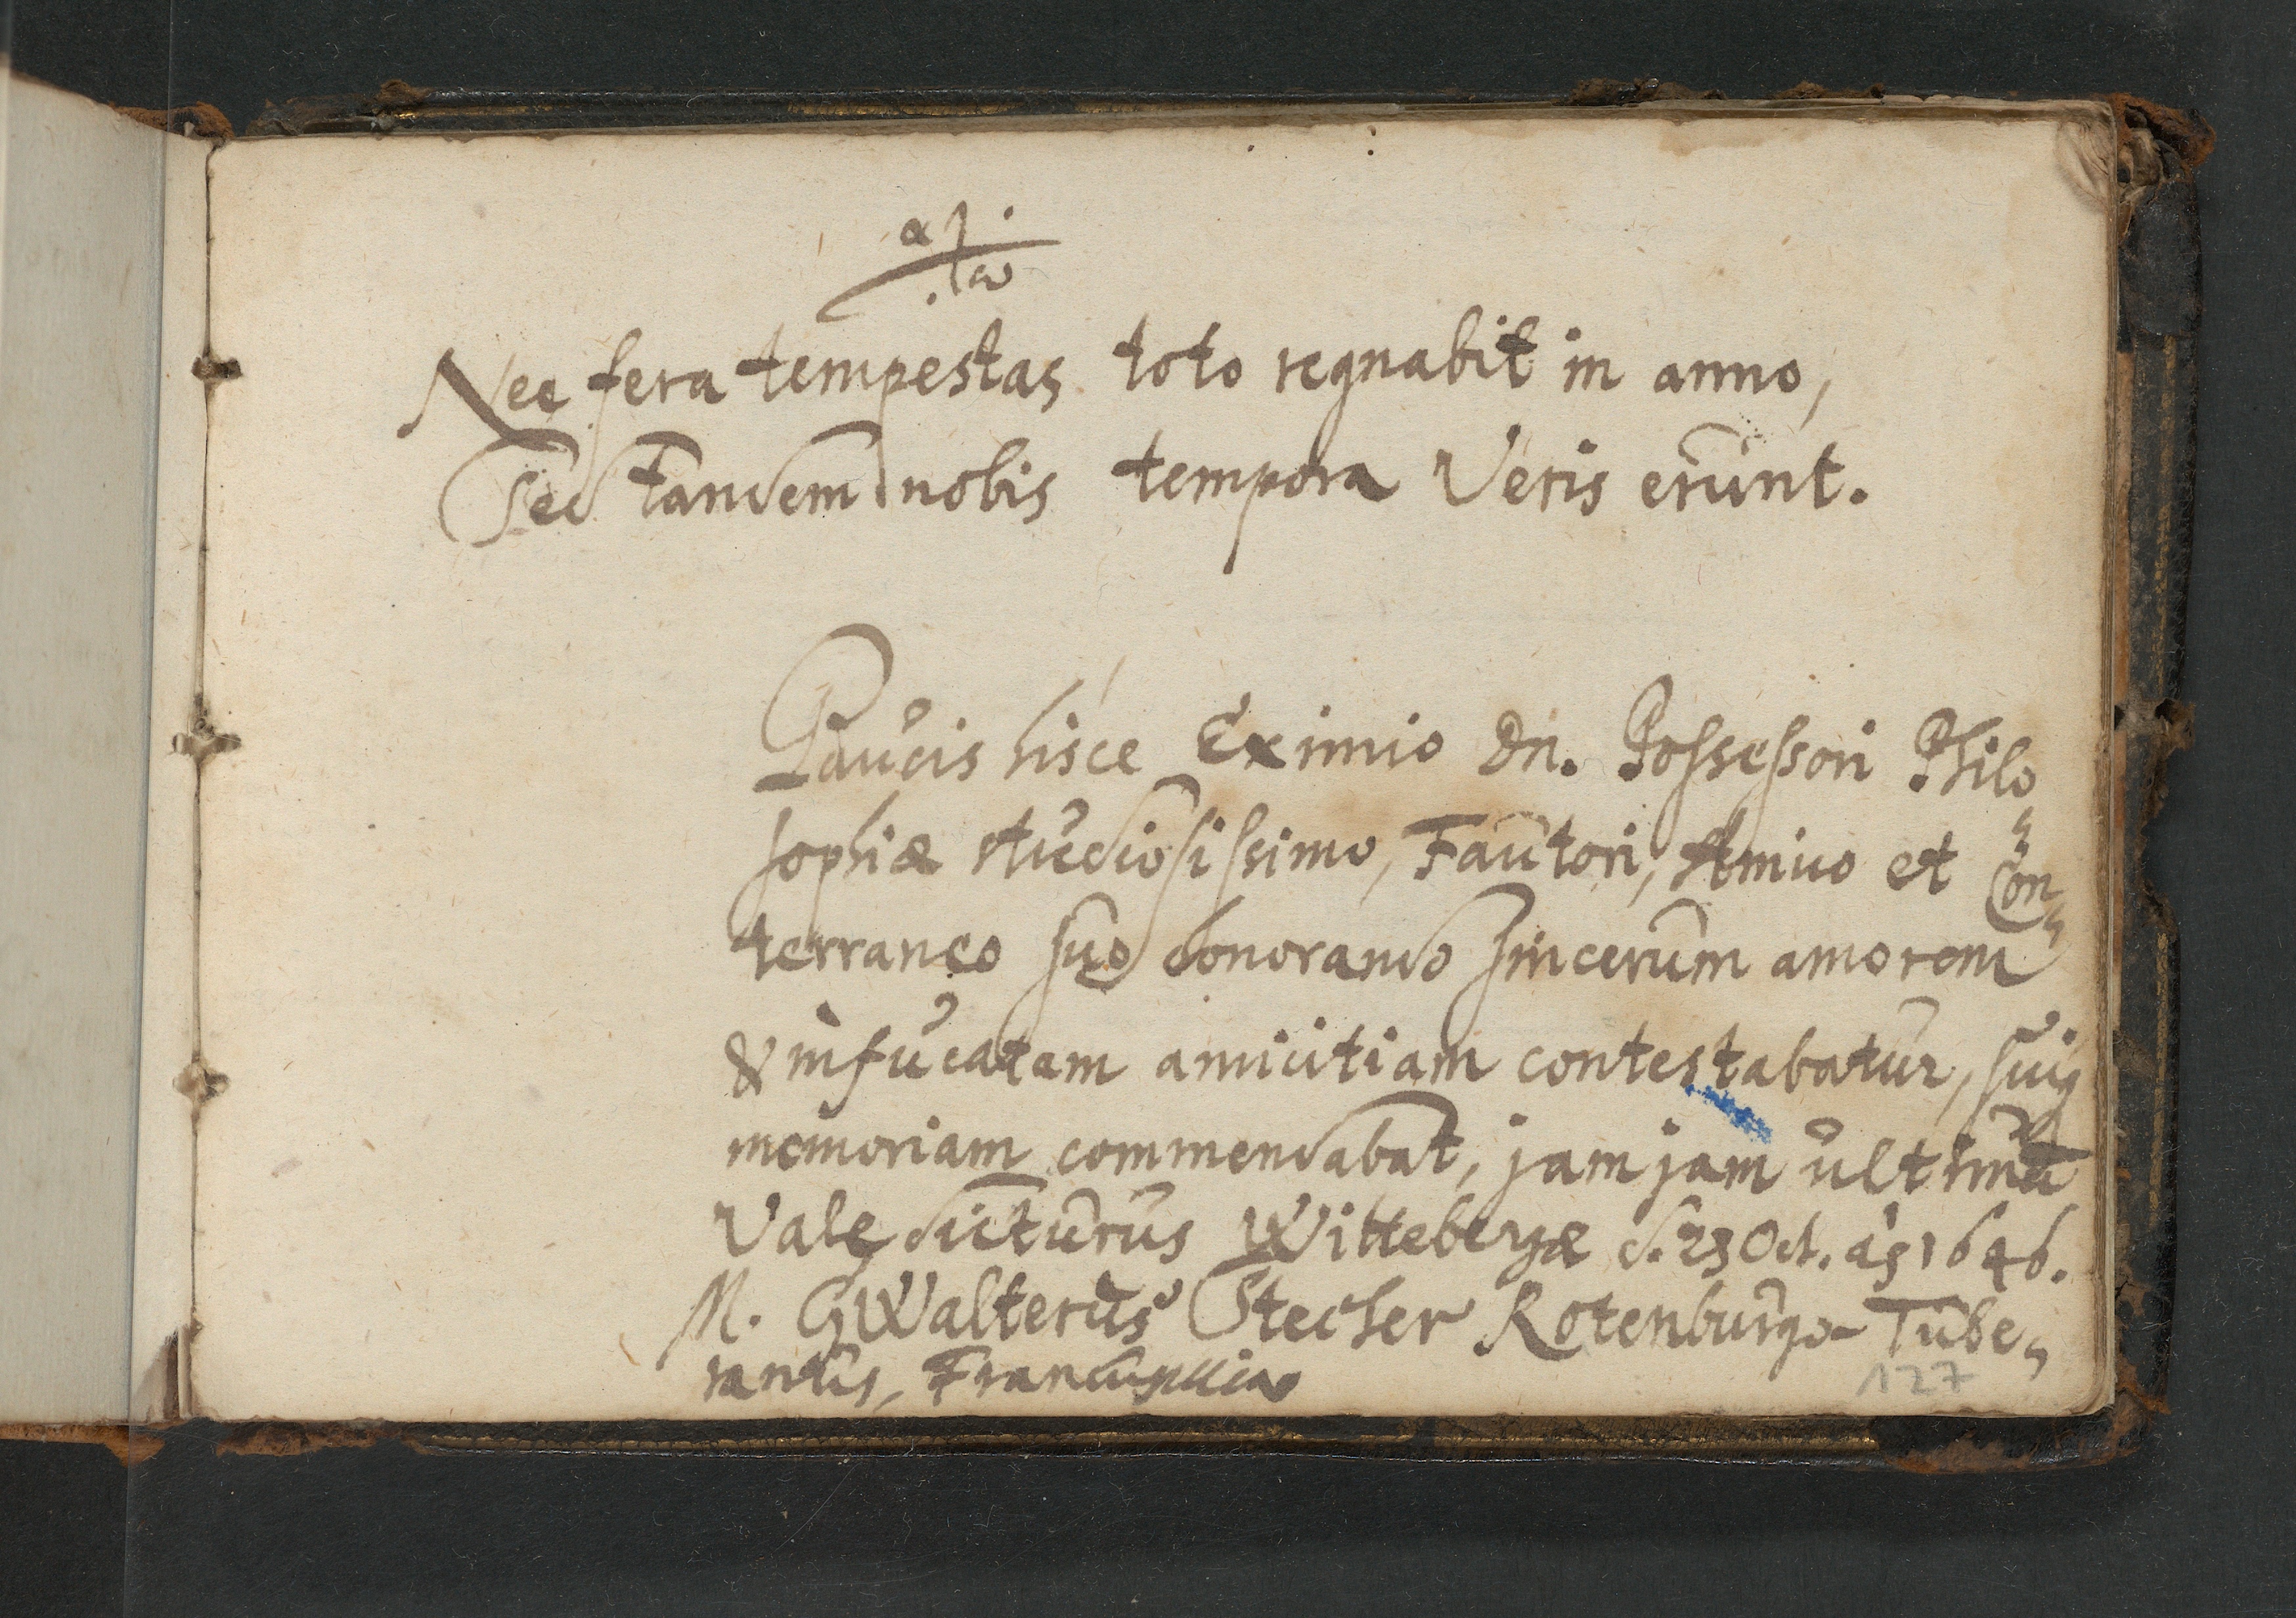 α
ω
Nec fera tempestas toto regnabit in anno,
Sed tandem nobis tempora Veris erunt.
Paucis hisce Eximio Dn. Possessori Philo
sophiæ studiosissimo, Fautori, Amico et Con
terraneo suo honorando sincerum amorem
& infucatam amicitiam contestabatur, suiq
memoriam commendabat, jam jam ultimū
Vale dicturus Wittebergæ d. 23 Oct. as 1646.
M. GWalterus Stecher Rotenburgo-Tube
ranus,
127